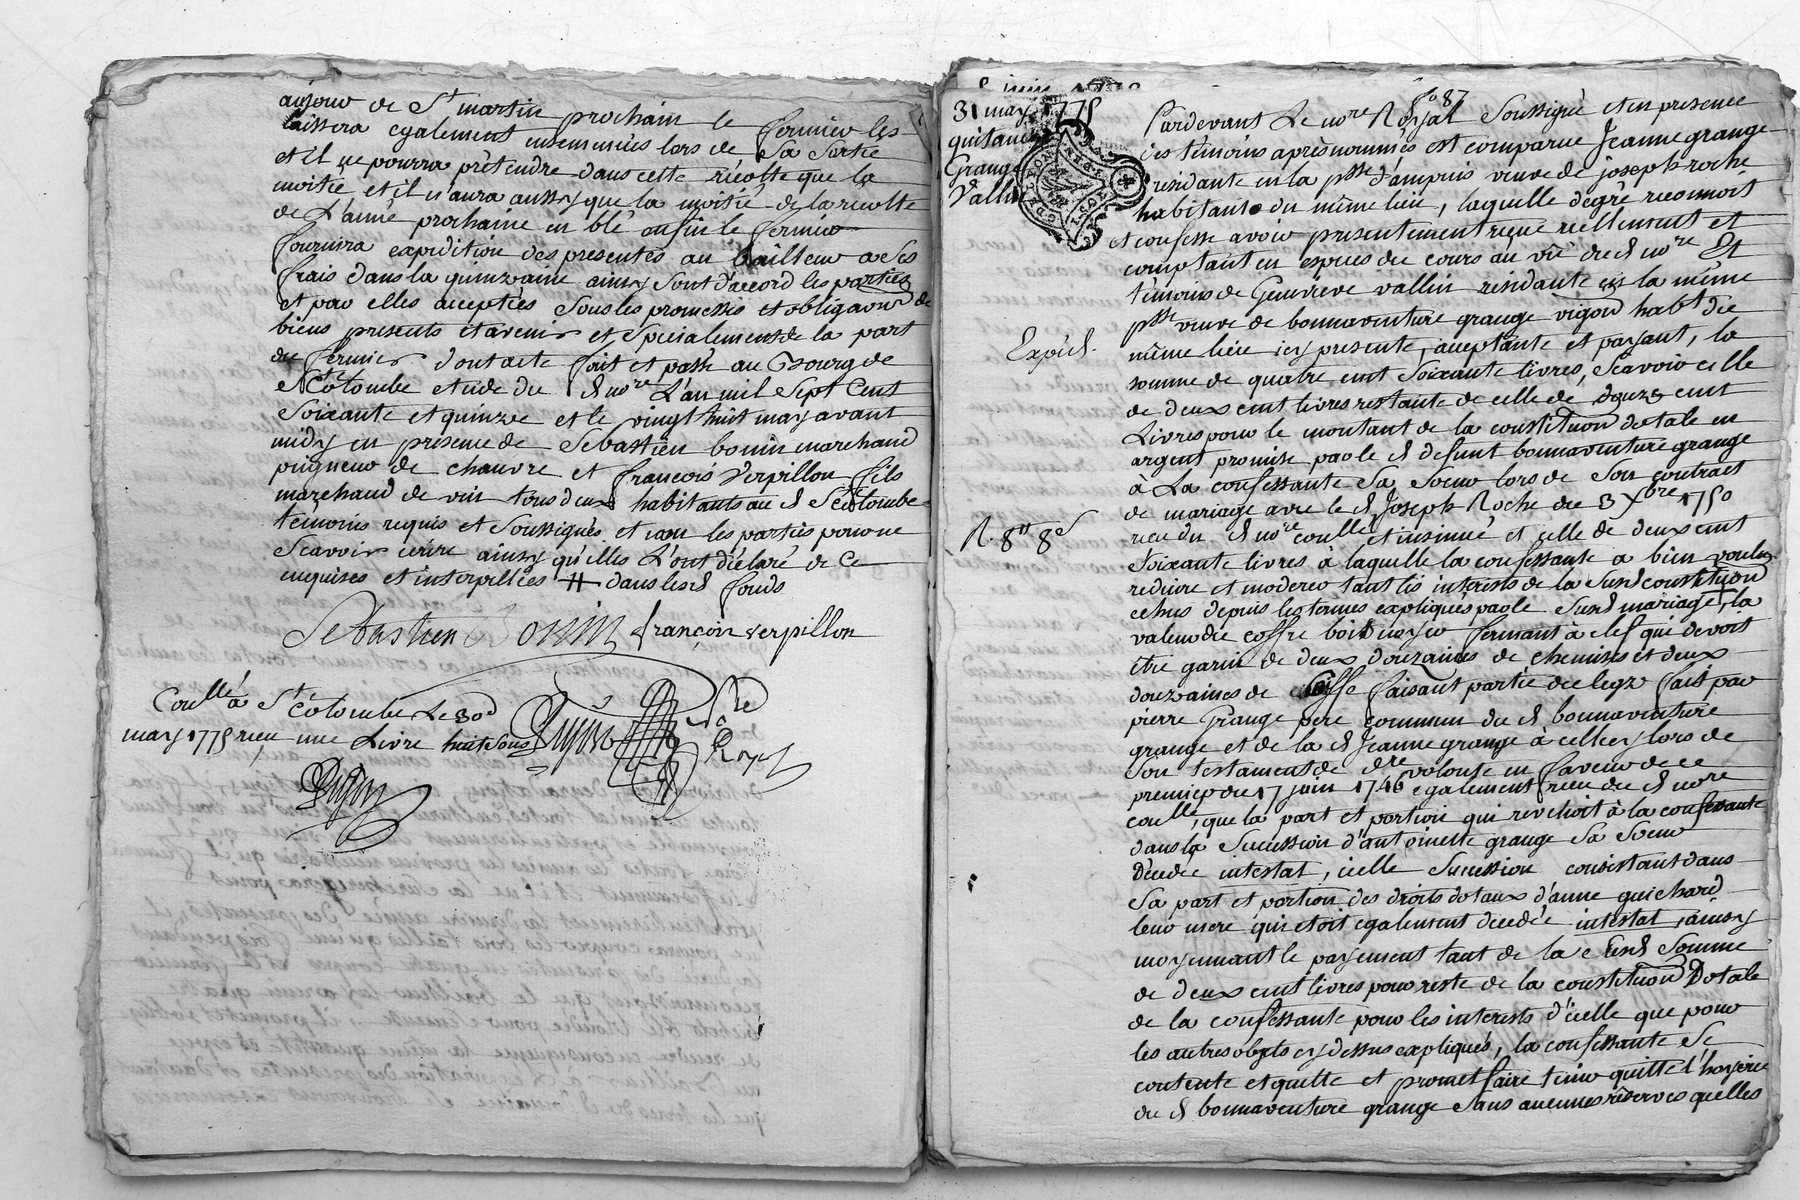 aujour de St martin prochain le fermier les
laissera egalement ensemencées lors de Sa Sortie
et il ne pourra prétendre dans cette récolte que la
moitié et il n'aura aussy que la moitié de la récolte
de L'année prochaine en blé enfin le fermier
fournira expedition des presentes au bailleur a Ses
frais dans la quinzaine ainsy Sont d'accord les parties
et par elles acceptées Sous les promesses et obligaon de
biens presents et avenir et Spécialement de la part
du fermier dont acte fait et passé au Bourg de
Ste Colombe etude du d nore L'an mil Sept Cent
Soixante et quinze et le vingt huit may avant
midy en présence de Sebastien bonin marchand
peigneur de chanvre et françois Verpillon fils
marchand de vin tous deux habitants au d Ste Colombe
témoins requis et Soussignés et non les parties pour ne
Scavoir écrire ainsy qu'elles L'ont déclaré de Ce
enquises et interpellées # dans lesd fonds
Sebastien Bonin françoin verpillon
Coullé à Ste Colombe Le 30
may 1775 reçu une Livre huit Sous
Nre
Royal
31 may 1775
quitance
Grange
Vallin
fo 87
Pardevant Le nore Royal Soussigné et en presence
des témoins après nommés est comparue Jeanne grange
residante en la psse d'ampuis veuve de joseph roche
habitant du même lieu, laquelle de gré reconnoit
et confesse avoir presentement reçue réellement et
comptant en espèces du cours au vû du d nore Et
témoins de Genevieve vallin residante en la même
psse veuve de bonnaventure grange vigon habt du
même lieu icy presente, acceptante et payant, la
Expéd.
somme de quatre cent Soixante livres, Scavoir celle
de deux cent livres restante de celle de douze cent
Livres pour le montant de la constitution dotale en
argent promise par le d defunt bonnaventure grange
à La confessante Sa Soeur lors de Son contract
de mariage avec le d Joseph Roche du 3 Xbre 1750
R. 8tt 8s
recu du d nore coullé et insinué et celle de deux cent
Soixante livres à laquelle la confessante a bien voulu
reduire et moderer tant les interests de la Susd constitution
echus depuis les termes expliqués par le Susd mariage, la
valeur du coffre bois noyer fermant à clef qui devoit
être garni de deux douzaines de chemises et deux
douzaines de coiffe faisant partie du legz fait par
pierre Grange pere commun du d bonnaventure
grange et de la d Jeanne grange à celle cy lors de
Son testament de dre volonté en faveur de ce
premier du 17 juin 1746 egalement recu du d nore
coullé, que la part et portion qui revenoit à la confessante
dans la Succession d'antoinette grange Sa Soeur
décedée intestat, icelle Succession consistant dans
Sa part et portion des droits dotaux d'anne guichard
leur mere qui etoit egalement decedée intestat, ainsy
moyennant le payement tant de la Susd Somme
de deux cent livres pour reste de la constitution Dotale
de la confessante pour les interests d'icelle que pour
les autres objets cy dessus expliqués, la confessante Se
contente et quitte et promet faire tenir quitte l'hoyrie
du d bonnaventure grange Sans aucunes réserves quelles